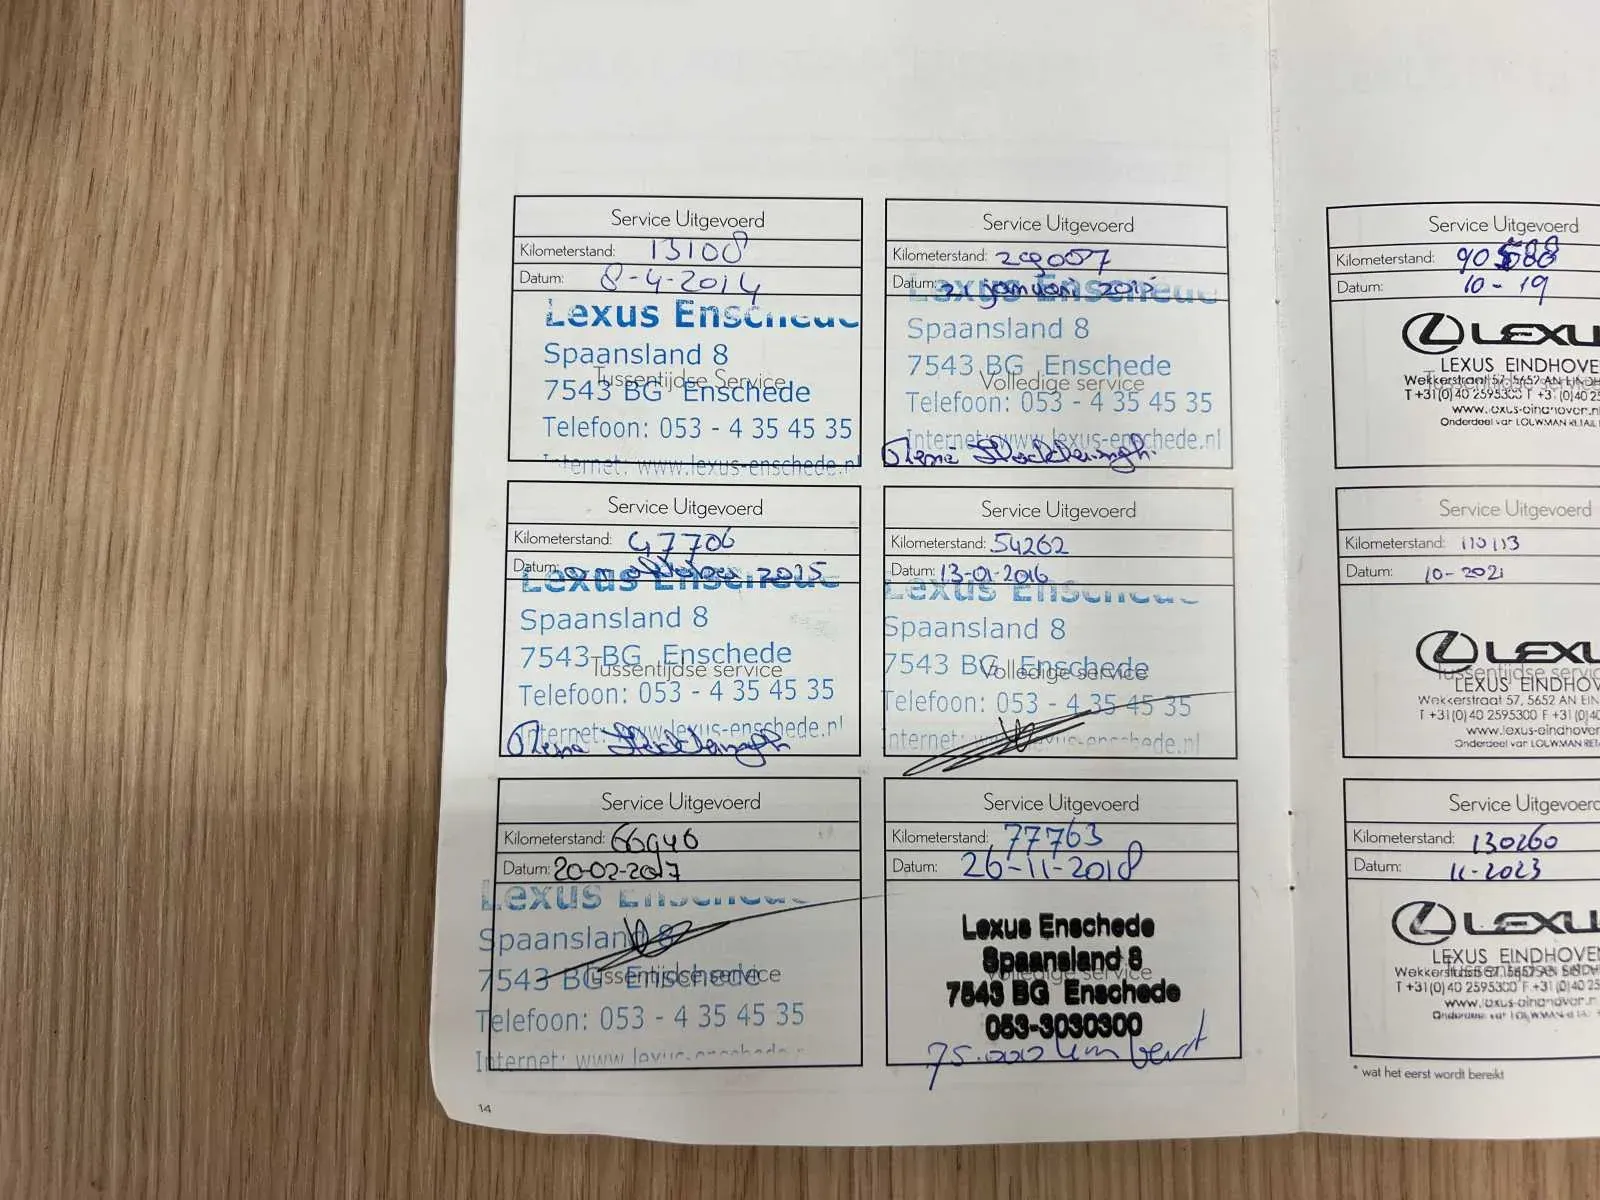 Service Uitgevoerd
Kilometerstand: 13108
Datum: 8-4-2014
Lexus Enschede
Spaansland 8
Tussentijdse Service
7543 BG Enschede
Telefoon: 053 - 4 35 45 35
Internet: www.lexus-enschede.nl
Service Uitgevoerd
Kilometerstand: 29007
Datum: 21 januari 2015
Lexus Enschede
Spaansland 8
7543 BG Enschede
Volledige service
Telefoon: 053 - 4 35 45 35
Internet: www.lexus-enschede.nl
Service Uitgevoerd
Kilometerstand: 47706
Datum: 2015
Lexus Enschede
Spaansland 8
7543 BG Enschede
Tussentijdse service
Telefoon: 053 - 4 35 45 35
Internet: www.lexus-enschede.nl
Service Uitgevoerd
Kilometerstand: 54262
Datum: 13-01-2016
Lexus Enschede
Spaansland 8
7543 BG Enschede
Volledige service
Telefoon: 053 - 4 35 45 35
Internet: www.lexus-enschede.nl
Service Uitgevoerd
Kilometerstand: 66946
Datum: 20-02-2017
Lexus Enschede
Spaansland 8
7543 BG Enschede
Tussentijdse service
Telefoon: 053 - 4 35 45 35
Internet: www.lexus-enschede.n
Service Uitgevoerd
Kilometerstand: 77763
Datum: 26-11-2018
Lexus Enschede
Spaansland 8
Volledige service
7543 BG Enschede
053-3030300
75.000 km beurt
14
Service Uitgevoerd
Kilometerstand: 90588
Datum: 10-19
LEXU
LEXUS EINDHOVEN
Wekkerstraat 57, 5652 AN EINDH
T +31(0)40 2595300 F +31(0)40 25
www.lexus-eindhoven.n
Onderdeel van LOUWMAN RETAIL
Service Uitgevoerd
Kilometerstand: 110113
Datum: 10-2021
LEXU
Tussentijdse servic
LEXUS EINDHOV
Wekkerstraat 57, 5652 AN EIN
T +31(0)40 2595300 F +31(0)40
www.lexus-eindhoven
Onderdeel van LOUWMAN RETA
Service Uitgevoerd
Kilometerstand: 130260
Datum: 11-2023
LEXU
LEXUS EINDHOVEN
Wekkerstraat 57, 5652 AN EINDH
T +31(0)40 2595300 F +31(0)40 25
www.lexus-eindhoven.n
* wat het eerst wordt bereikt